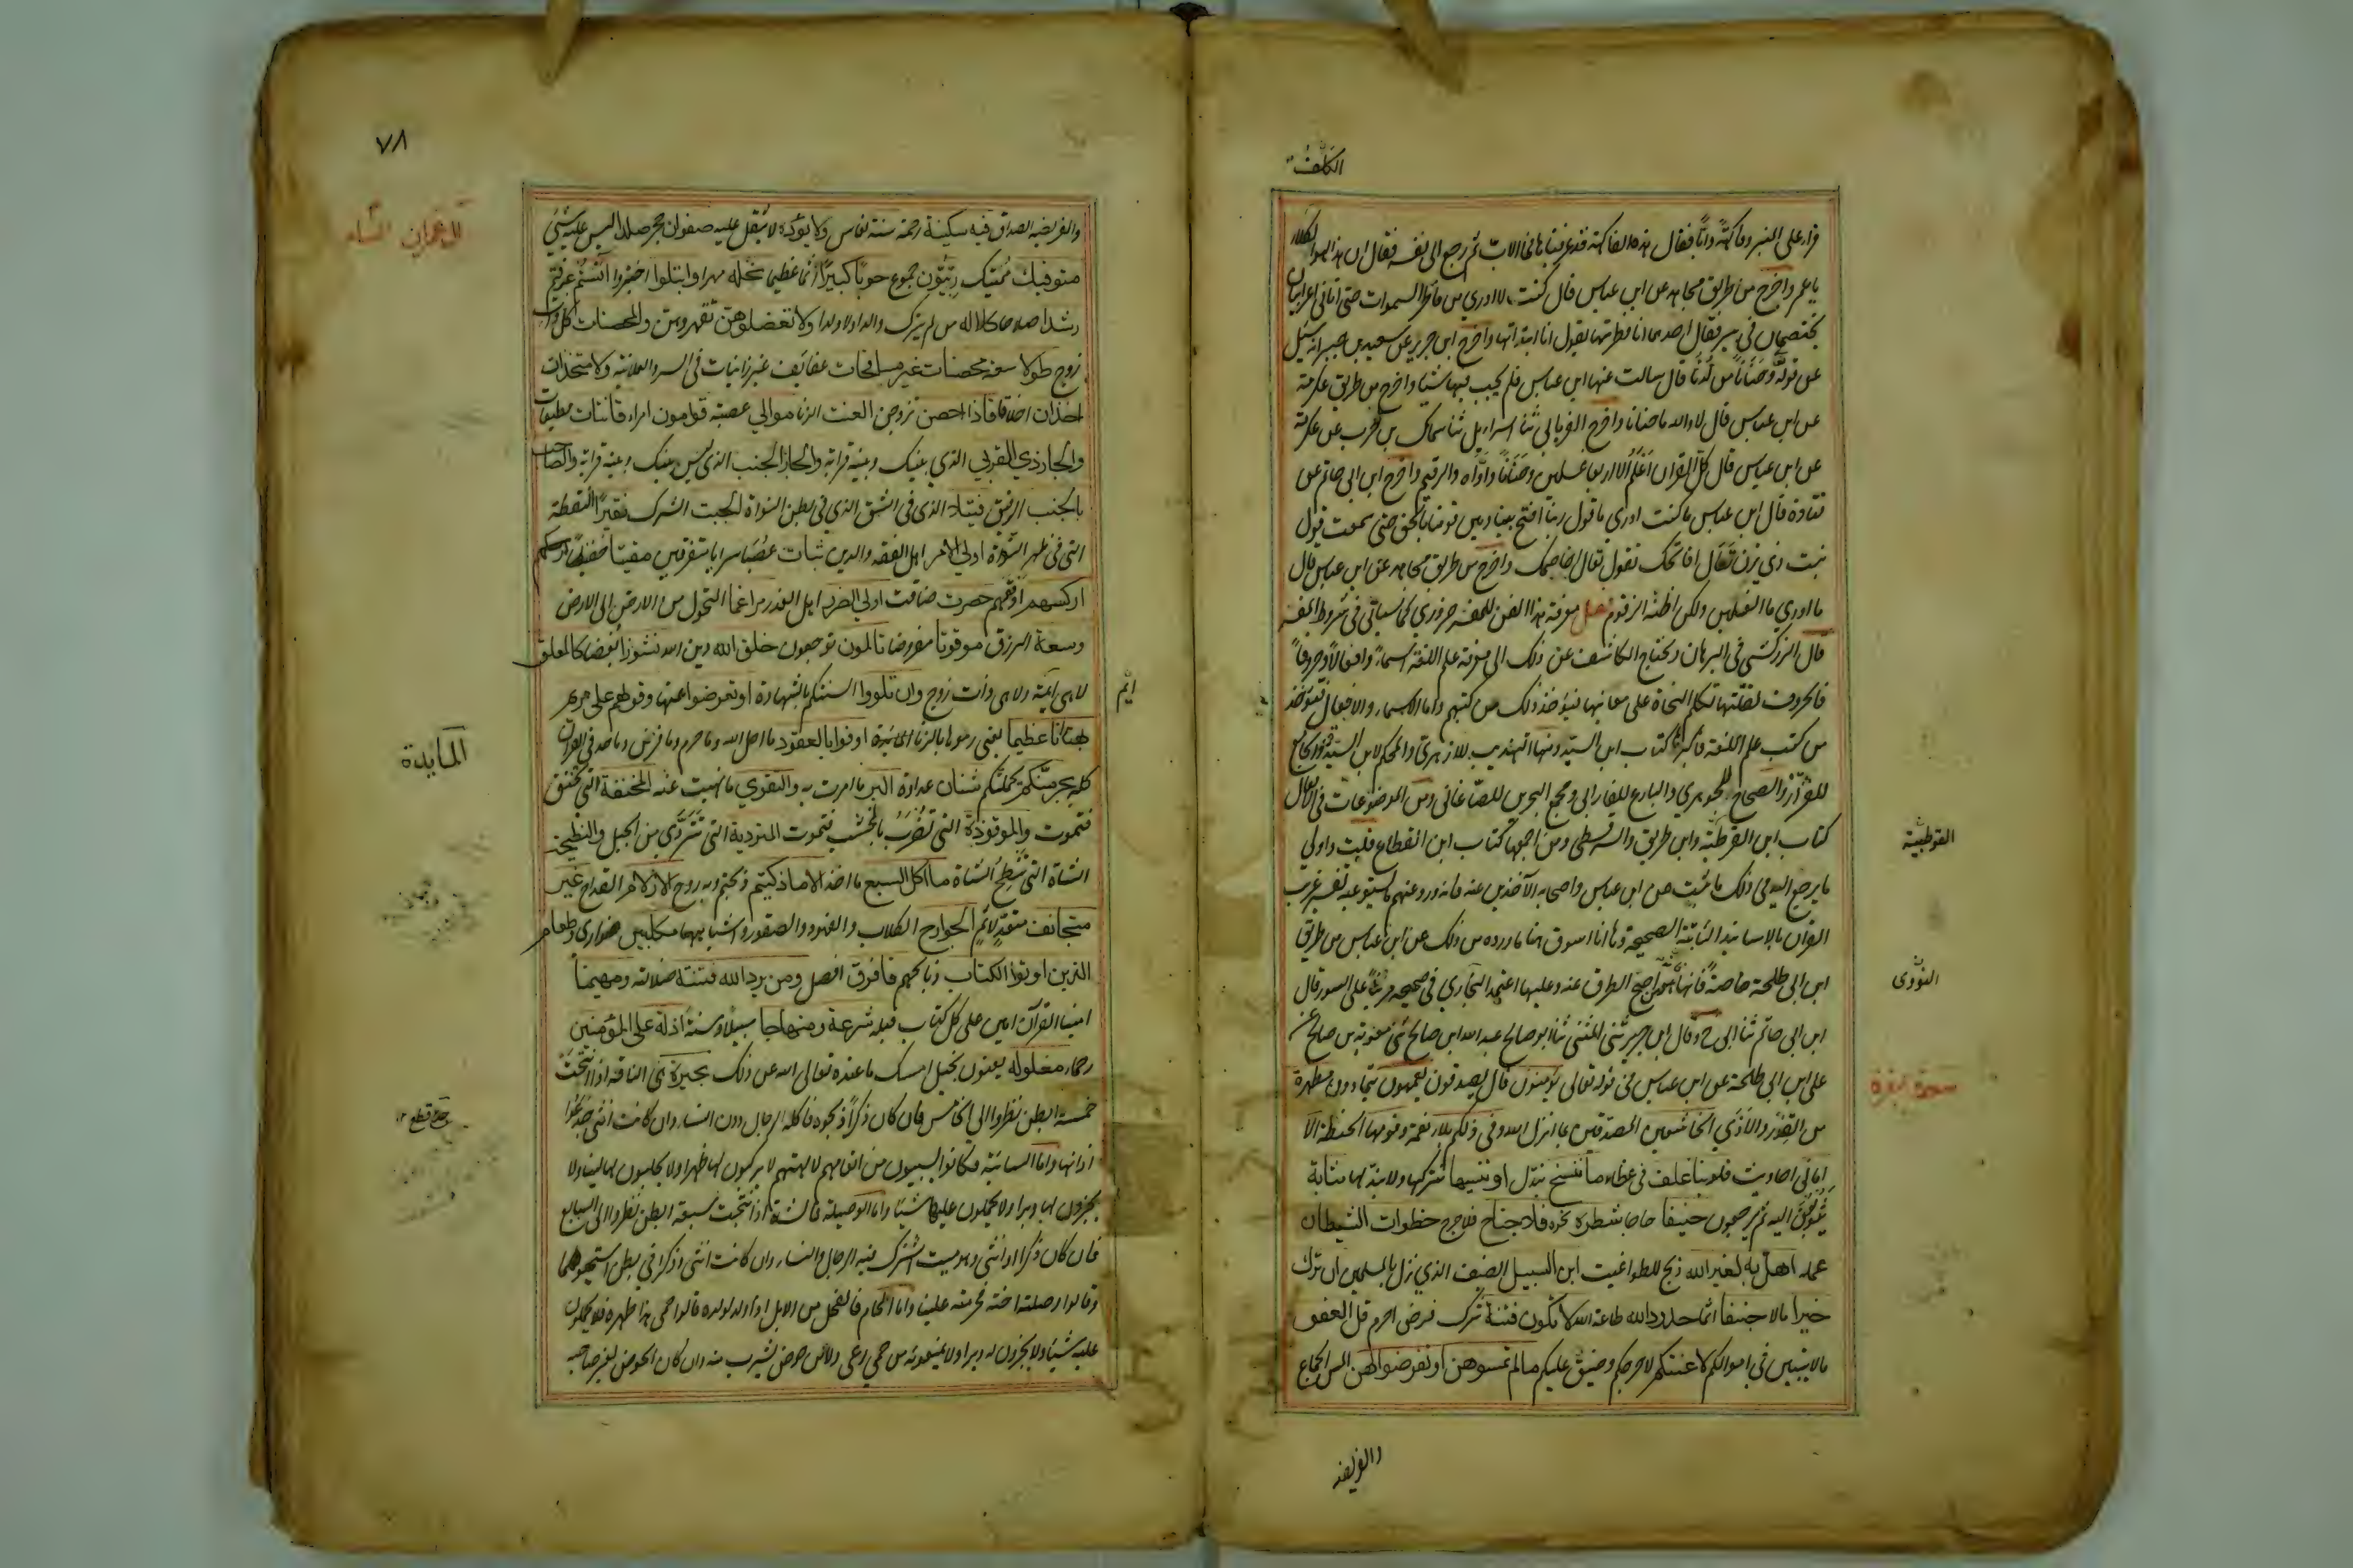 الكلف
قرأ على المنبر وفاكهة وأبا فقال هذه الفاكهة قد عرفناها فما الأب ثم رجع الى نفسه فقال ان هذا لهو الكلف
يا عمر واخرج من طريق مجاهد عن ابن عباس قال كنت لا ادري ما فاطر السموات حتى اتاني اعرابيان
يختصمان في بير فقال احدهما انا فطرتها يقول انا ابتدأتها واخرج ابن جرير عن سعيد بن جبير انه سئل
عن قوله وحنانا من لدنا قال سالت عنها ابن عباس فلم يجب فيها شيا واخرج من طريق عكرمة
عن ابن عباس قال لا والله ما حنانا واخرج الفريابي ثنا اسرائيل ثنا سماك بن حرب عن عكرمة
عن ابن عباس قال كل القران اعلم الا اربعا غسلين وحنانا واواه والرقيم واخرج ابن ابي حاتم عن
قتادة قال ابن عباس ما كنت ادري ما قول ربنا افتح بيننا وبين قومنا بالحق حتى سمعت قول
بنت ذي يزن تعال افاتحك تقول تعال اخاصمك واخرج من طريق مجاهد عن ابن عباس قال
ما ادري ما الغسلين ولكن اظنه الزقوم فصل معرفة هذا الفن للمفسر ضروري كما سياتي في شروط المفسر
قال الزركشي في البرهان ويحتاج الكاشف عن ذلك الى معرفة علم اللغة اسماء وافعالا وحروفا
فالحروف لقلتها تكلم النحاة على معانيها فيؤخذ ذلك من كتبهم واما الاسماء والافعال فتؤخذ
من كتب علم اللغة واكبرها كتاب ابن السيد ومنها التهذيب للازهري والمحكم لابن السيدة والجامع
للقزاز والصحاح للجوهري والبارع للفارابي ومجمع البحرين للصاغاني ومن الموضوعات في الافعال
كتاب ابن القوطية وابن طريق والسرقسطي ومن اجمعها كتاب ابن القطاع قلت واولى
القوطبية
ما يرجع اليه في ذلك ما ثبت عن ابن عباس واصحابه الآخذين عنه فانه ورد عنهم ما يستوعب تفسير غريب
القران بالاسانيد الثابتة الصحيحة وها انا اسوق هنا ما ورد من ذلك عن ابن عباس من طريق
ابن ابي طلحة خاصة فانها من اصح الطرق عنه وعليها اعتمد البخاري في صحيحه مرتبا على السور قال
ابن ابي حاتم ثنا ابي ح وقال ابن جرير ثنى المثنى ثنا ابو صالح عبد الله ابن صالح ثنى معوية بن صالح عن
على ابن ابي طلحة عن ابن عباس في قوله تعالى يؤمنون قال يصدقون يعمهون يتمادون مطهرة
من القذر والاذى الخاشعين المصدقين بما انزل الله وفي ذلكم بلاء نعمة وفومها الحنطة الا
اماني احاديث قلوبنا غلف في غطاء ما ننسخ نبدل او ننسيها نتركها ولا نبدلها مثابة
يثوبون اليه ثم يرجعون حنيفا حاجا شطره نحوه فلا جناح فلا حرج خطوات الشيطان
عمله اهل به لغير الله ذبح للطواغيت ابن السبيل الضيف الذي نزل بالمسلمين ان ترك
خيرا مالا جنفا اثما حدود الله طاعة الله لا تكون فتنة شرك فرض احرم قل العفو
مالا يتبين في اموالكم لاعنتكم لاحرجكم وضيق عليكم ما لم تمسوهن او تفرضوا لهن المس الجماع
والفريضة
٧٨
ال عمران النساء
والفريضة الصداق فيه سكينة رحمة سنة نعاس ولا يؤده لا يثقل عليه صفوان حجر صلد ليس عليه شئ
متوفيك مميتك ربيون جموع حوبا كبيرا اثما عظيما نحلة مهرا وابتلوا اختبروا آنستم عرفتم
رشدا صلاحا كلالة من لم يترك والدا ولا ولدا ولا تعضلوهن تقهروهن والمحصنات كل ذات
زوج طولا سعة محصنات غير مسافحات عفائف غير زانيات في السر والعلانية ولا متخذات
اخدان اخلاء فاذا احصن تزوجن العنت الزنا موالي عصبة قوامون امراء قانتات مطيعات
والجار ذي القربى الذي بينك وبينه قرابة والجار الجنب الذي ليس بينك وبينه قرابة والصاحب
بالجنب الرفيق فتيلا الذى فى الشق الذى فى بطن النواة الجبت الشرك نقيرا النقطة
التى فى ظهر النواة اولي الامر اهل الفقه والدين ثبات عصبا سرايا متفرقين مقيتا حفيظا اركسهم
اركسهم اوقعهم حصرت ضاقت اولي الضرر اهل العذر مراغما التحول من الارض الى الارض
وسعة الرزق موقوتا مفروضا تالمون توجعون خلق الله دين الله نشوزا بغضا كالمعلقة
لا هى ايمة ولا هى ذات زوج وان تلووا السنتكم بالشهادة او تعرضوا عنها وقولهم على مريم
ايم
بهتانا عظيما يعني رموها بالزنا المائدة اوفوا بالعقود ما احل الله وما حرم وما فرض وما حد في القران
المايدة
كله يجرمنكم يحملنكم شنان عداوة البر ما امرت به والتقوي ما نهيت عنه المنخنقة التى تختنق
فتموت والموقوذة التى تضرب بالخشب فتموت المتردية التى تتردى من الجبل والنطيحة
الشاة التى تنطح الشاة ما اكل السبع ما اخذ الا ما ذكيتم ذبحتم وبه روح الازلام القداح غير
متجانف متعد لاثم الجوارح الكلاب والفهود والصقور واشباهها مكلبين ضواري وطعام
الذين اوتوا الكتاب ذبائحهم فافرق افصل ومن يرد الله فتنته ضلالته ومهيمنا
امينا القرآن امين على كل كتاب قبله شرعة ومنهاجا سبيلا وسنة اذلة على المؤمنين
رحماء مغلولة يعنون بخيل امسك ما عنده تعالى الله عن ذلك بحيرة هى الناقة اذا انتجت
خمسة ابطن نظروا الى الخامس فان كان ذكرا ذبحوه فاكله الرجال دون النساء وان كانت انثى جدعوا
اذانها واما السائبة فكانوا يسيبون من انعامهم لالهتهم لا يركبون لها ظهرا ولا يحلبون لها لبنا ولا
يجزون لها وبرا ولا يحملون عليها شيئا واما الوصيلة فالشاة اذا نتجت سبعة ابطن نظروا الى السابع
فان كان ذكرا او انثى وهو ميت اشترك فيه الرجال والنساء وان كانت انثى وذكرا في بطن استحيوهما
وقالوا وصلته اخته فحرمته علينا واما الحام فالفحل من الابل اذا ولد لولده قالوا حمى هذا ظهره فلا يحملون
عليه شيئا ولا يجزون له وبرا ولا يمنعونه من حمي رعى ولا من حوض يشرب منه وان كان الحوض لغير صاحبه